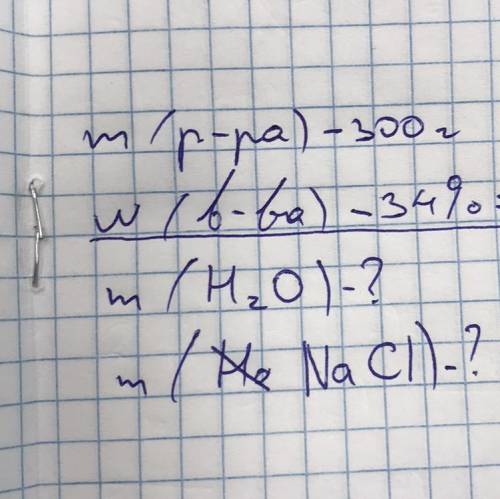 m (р-ра) - 300 г
w (в-ва) - 34% =
m (H₂O) - ?
m ( NaCl) - ?